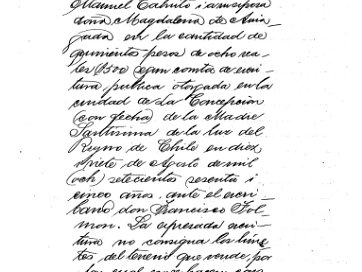 Manuel Cahuto i a su esposa
doña Magdalena de Arria
gada en la cantidad de
quinientos pesos de ocho rea
les ($500) segun consta de escri
tura publica otorgada en la
ciudad de La Concepcion
(con fecha) de la Madre
Santísima de la luz del
Reyno de Chile en diez
i siete de Agosto de mil
(och) setecientos sesenta i
cinco años, ante el escri
bano don Francisco Fol
mon. La espresada escri
tura no consigna los lími
tes del terreno que vende, por